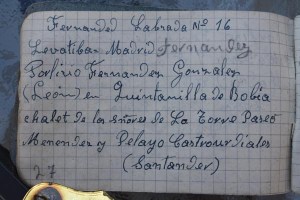 Fernandez Labrada Nº 16
Levatiba Madrid Fernandez
Porlirio Fernandez Gonzalez
(León) en Quintanilla de Bobia
chalet de los señores de La Torre Paseo
Menendez y Pelayo Castrourdiales
(Santander)
27